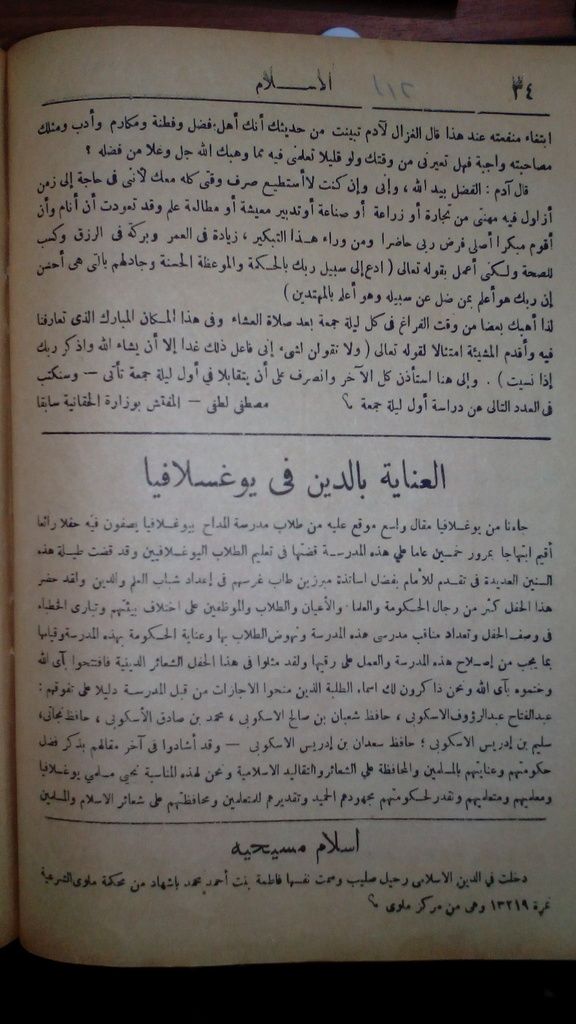 ٣٤
الاســـلام
١١٢
ابتغاء منفعته عند هذا قال الغزال لآدم تبينت من حديثك أنك أهل فضل وفطنة ومكارم وأدب ومثلك
مصاحبته واجبة فهل تعيرنى من وقتك ولو قليلا تعلمنى فيه مما وهبك الله جل وعلا من فضله ؟
قال آدم : الفضل بيد الله ، وإنى وإن كنت لا أستطيع صرف وقتى كله معك لأنى فى حاجة إلى زمن
أزاول فيه مهنتى من تجارة أو زراعة أو صناعة أوتدبير معيشة أو مطالعة علم وقد تعودت أن أنام وأن
أقوم مبكرا أصلى فرض ربى حاضرا ومن وراء هـذا التبكير ، زيادة فى العمر وبركة فى الرزق وكسب
للصحة ولـكنى أعمل بقوله تعالى ( ادع إلى سبيل ربك بالحـكمة والموعظة الحسنة وجادلهم بالتى هى أحسن
إن ربك هو أعلم بمن ضل عن سبيله وهو أعلم بالمهتدين )
لذا أهبك بعضا من وقت الفراغ فى كل ليلة جمعة بعد صلاة العشاء وفى هذا المـكان المبارك الذى تعارفنا
فيه وأقدم المشيئة امتثالا لقوله تعالى ( ولا تقولن لشىء إنى فاعل ذلك غدا إلا أن يشاء الله واذكر ربك
إذا نسيت ) . وإلى هنا استأذن كل الآخر وانصرف على أن يتقابلا فى أول ليلة جمعة تأتى — وسنكتب
فى العدد التالى عن دراسة أول ليلة جمعة مصطفى لطفى — المفتش بوزارة الحقانية سابقا
العناية بالدين فى يوغسلافيا
جاءنا من يوغسلافيا مقال واسع موقع عليه من طلاب مدرسة المداح بيوغسلافيا يصفون فيه حفلا رائعا
أقيم ابتهاجا بمرور خمسين عاما على هذه المدرسـة قضتها فى تعليم الطلاب اليوغسلافيين وقد قضت طيـلة هذه
السنين العديدة فى تقدم للأمام بفضل اساتذة مبرزين طاب غرسهم فى إعداد شباب العلم والدين ولقد حضر
هذا الحفل كثر من رجال الحكومة والعلماء والأعيان والطلاب والموظفين على اختلاف بيئتهم وتبارى الخطباء
فى وصف الحفل وتعداد مناقب مدرسى هذه المدرسة ونهوض الطلاب بها وعناية الحكومة بهذه المدرسة وقيامها
بما يجب من إصـلاح هذه المدرسة والعمل على رقيها ولقد مثلوا فى هذا الحفل الشعائر الدينية فافتتحوا بآى الله
وختموه بآى الله ونحن ذاكرون لك اسماء الطلبة الذين منحوا الاجازات من قبل المدرسـة دليلا على تفوقهم :
عبدالفتاح عبدالرؤوف الاسكوبى ، حافظ شعبان بن صالح الاسكوبى ، محمد بن صادق الأسكوبى ، حافظ نجاتى،
سليم بن إدريس الاسكوبى ؛ حافظ سعدان بن إدريس الاسكوبى — وقد أشادوا فى آخر مقالهم بذكر فضل
حكومتهم وعنايتهم بالمسلمين والمحافظة على الشعائر والتقاليد الاسلامية ونحن لهذه المناسبة نحيى مسلمى يوغسلافيا
ومعلميهم ومتعلميهم ونقدر لحـكومتهم مجهودهم الحميد وتقديرهم للمتعلمين ومحافظتهم على شعائر الاسلام والمسلمين
اسلام مسيحيه
دخلت في الدين الاسلامى رحيل صليب وسمت نفسها فاطمة بنت أحمد محمد باشهاد من محكمة ملوى الشرعية
نمرة ١٣٢١٩ وهى من مركز ملوى